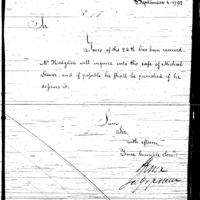 September 4. 1792
Sir
Yours of the 24th has been received.
Mr Hodgdon will inquire into the case of Michael
and if possible he shall be furnished if he
deserves it.
I am
Sir,
with esteem
Your humble Serv.